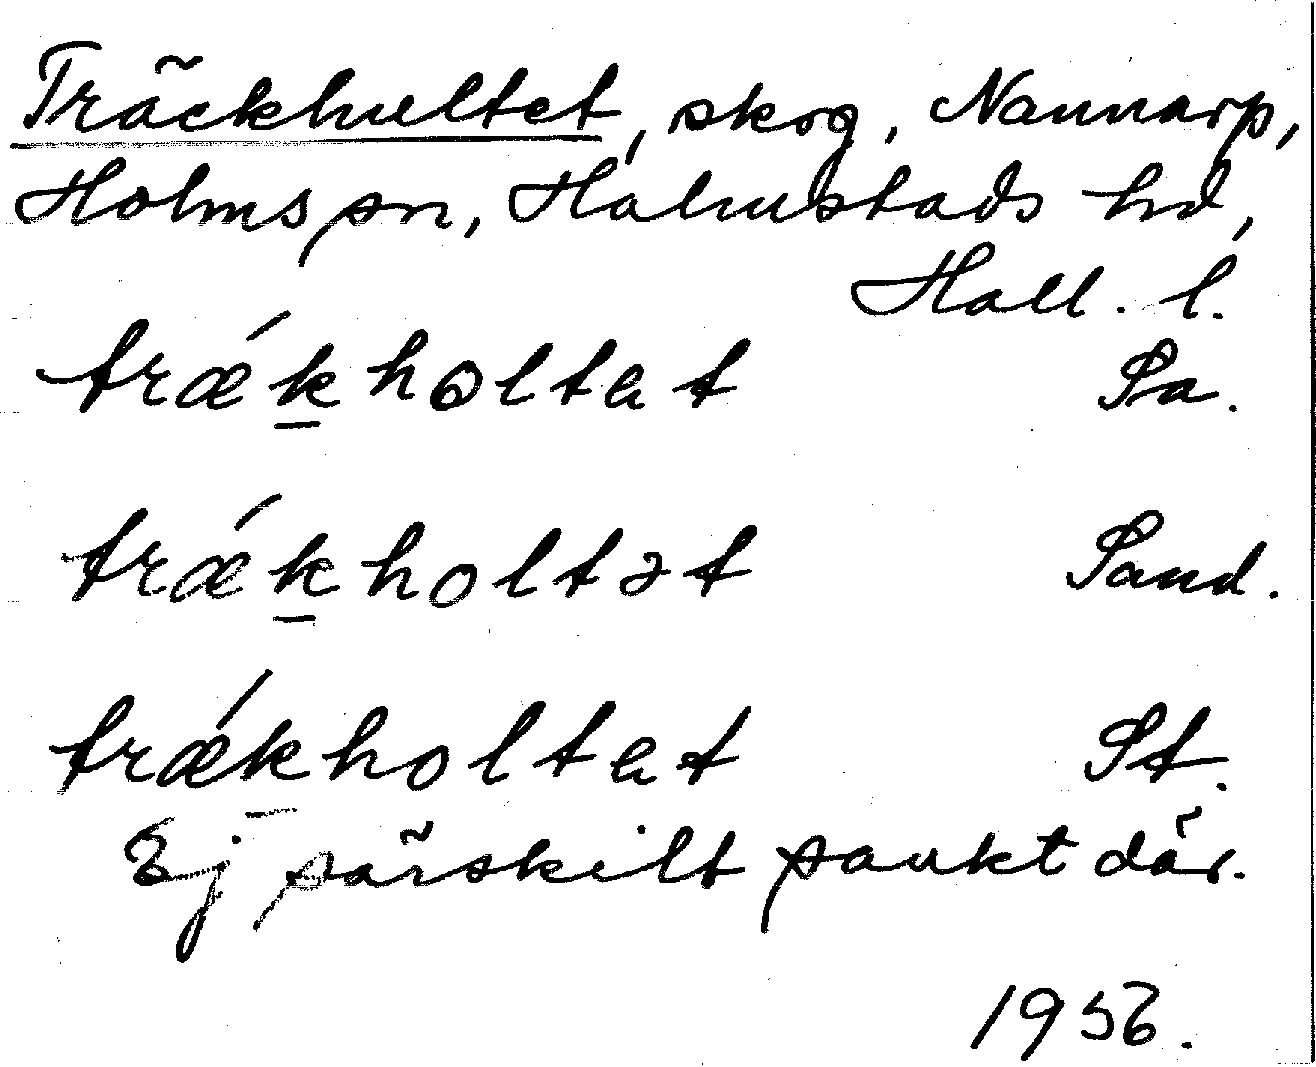 Träckhultet, skog, Nannarp,
Holms sn, Halmstads hd,
Hall. l.
trǽk̠hɷltat Sa.
trǽk̠holtət Sand.
trǽk̠holtat St.
Ej särskilt sankt där.
1956.